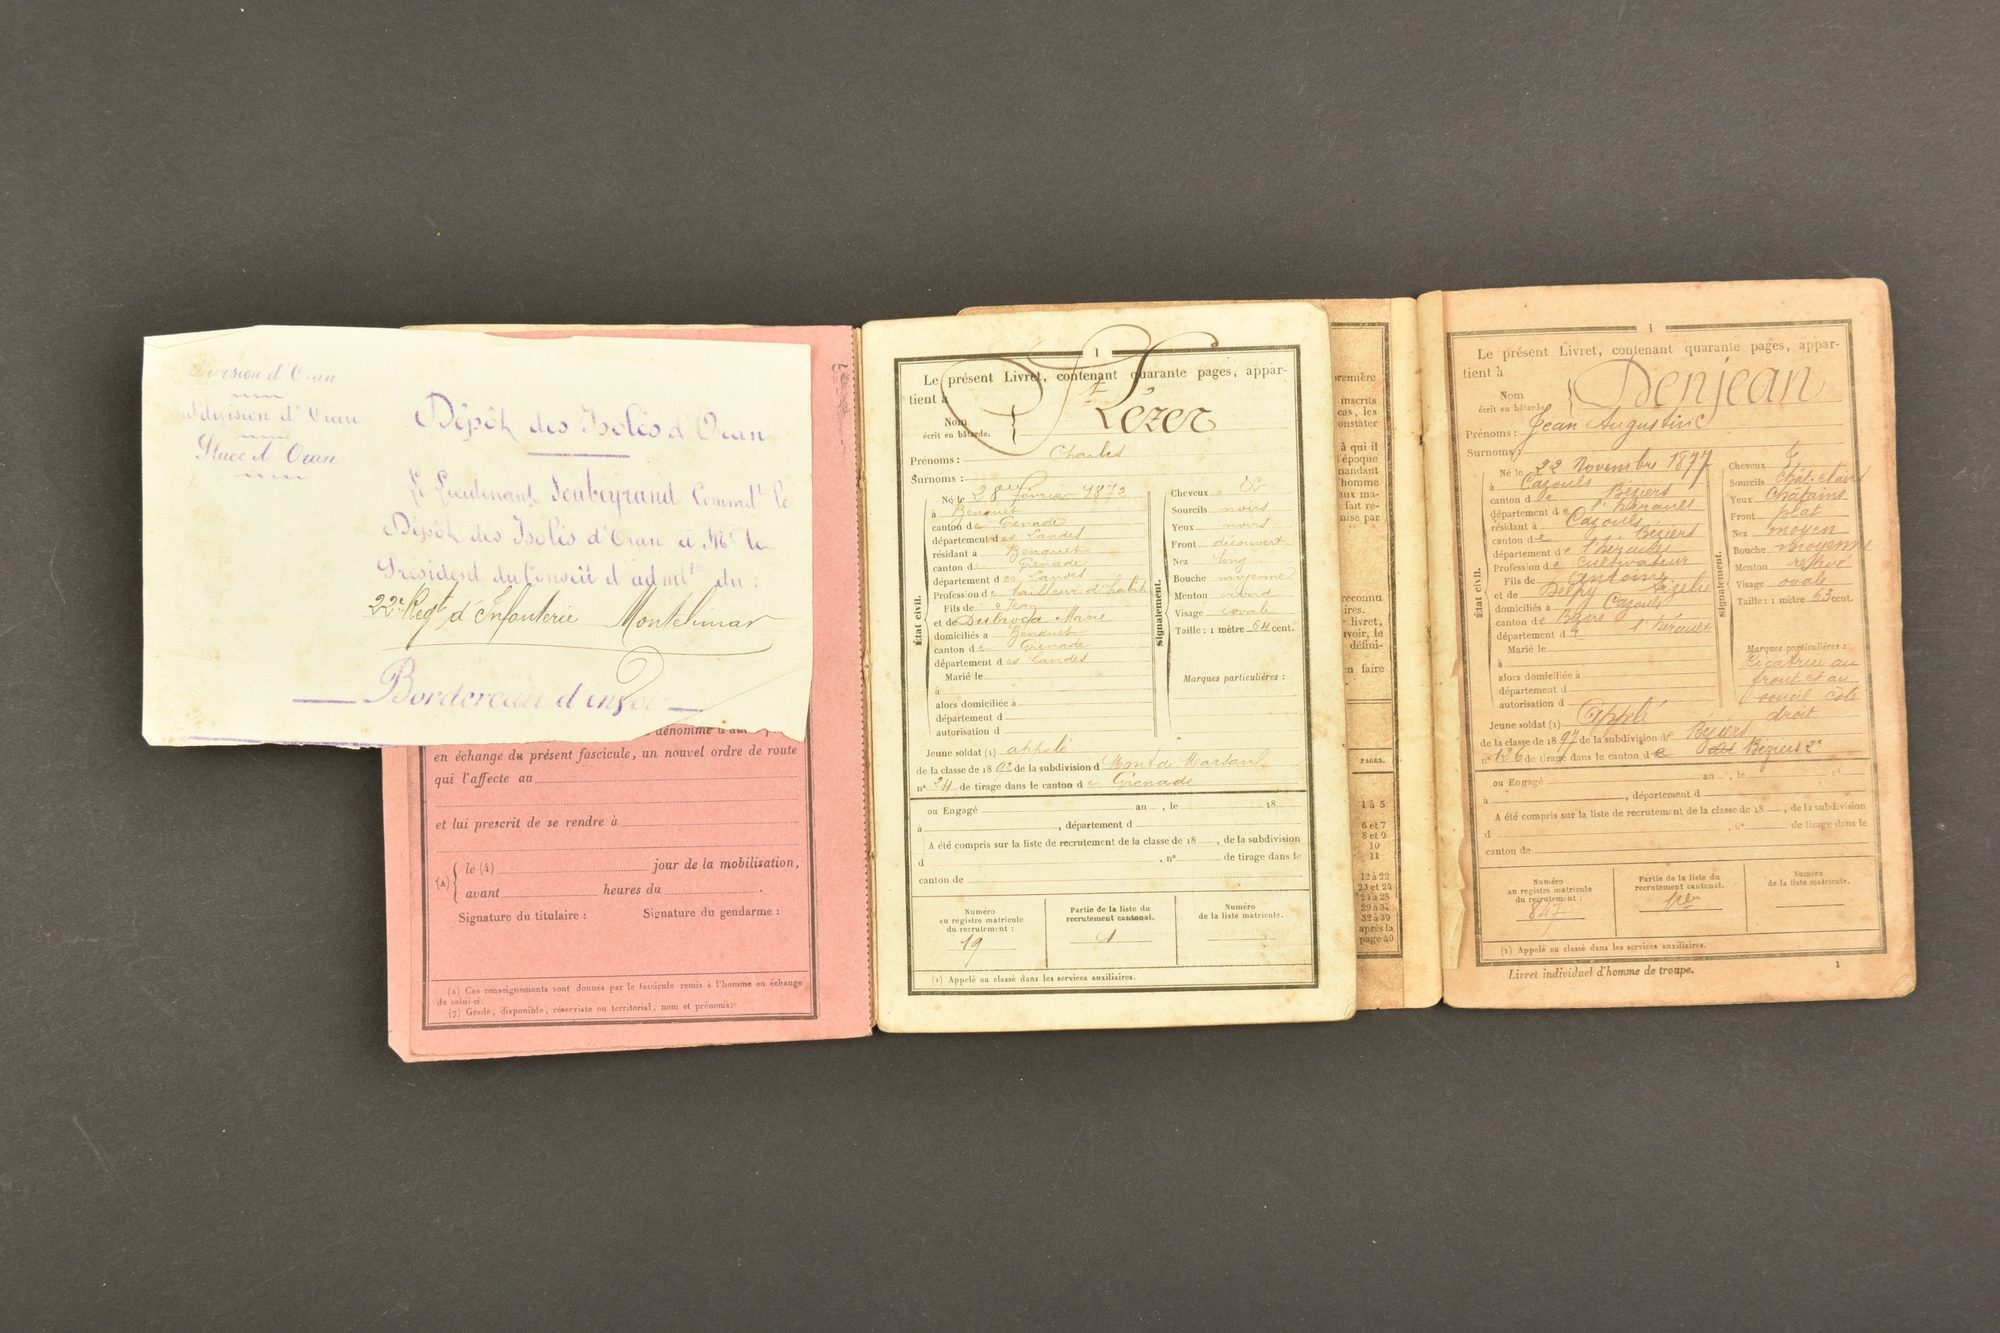 Division d'Oran
Subdivision d'Oran
Place d'Oran
Dépôt des Isolés d'Oran
Le Lieutenant Soubeyrand Commdt le
Dépôt des Isolés d'Oran à Mr le
Président du Conseil d'admt du :
22e Regt d'Infanterie Montelimar
Bordereau d'envoi
en échange du présent fascicule, un nouvel ordre de route
qui l'affecte au
et lui prescrit de se rendre à
(A) le (4) jour de la mobilisation,
avant heures du .
Signature du titulaire : Signature du gendarme :
(A) Ces renseignements sont donnés par le fascicule remis à l'homme en échange
de celui-ci.
(7) Grade, disponible, réserviste ou territorial, nom et prénoms.
1
Le présent Livret, contenant quarante pages, appar-
tient à
Nom St Lézer
écrit en bâtarde.
Prénoms : Charles
Surnoms :
État civil.
Né le 28 février 1872
à Benquet
canton de Grenade
département des Landes
résidant à Benquet
canton de Grenade
département des Landes
Profession de tailleur d'habits
Fils de Jean
et de Dubroca Marie
domiciliés à Benquet
canton de Grenade
département des Landes
Marié le
à
alors domiciliée à
département d
autorisation d
Signalement.
Cheveux et
Sourcils noirs
Yeux noirs
Front découvert
Nez long
Bouche moyenne
Menton rond
Visage ovale
Taille : 1 mètre 64 cent.
Marques particulières :
Jeune soldat (1) appelé
de la classe de 189 de la subdivision d Mont de Marsan
n° 24 de tirage dans le canton de Grenade
ou Engagé an , le 18
à , département d
A été compris sur la liste de recrutement de la classe de 18 , de la subdivision
d , n° de tirage dans le
canton de
Numéro
au registre matricule
du recrutement :
19
Partie de la liste du
recrutement cantonal.
Numéro
de la liste matricule.
(1) Appelé ou classé dans les services auxiliaires.
première
inscrits
cas, les
constater
à qui il
l'époque
mandant
homme
aux ma-
fait re-
mise par
reconnu
ires.
livret,
voir, le
défini-
en faire
PAGES.
1 à 5
6 et 7
8 et 9
10
11
12 à 22
23 et 24
24 à 28
29 à 31
32 à 39
après la
page 40
1
Le présent Livret, contenant quarante pages, appar-
tient à
Nom Denjean
écrit en bâtarde.
Prénoms : Jean Augustin
Surnoms :
État civil.
Né le 22 Novembre 1877
à Cazouls
canton de Béziers
département de l'hérault
résidant à Cazouls
canton de Béziers
département de l'hérault
Profession de Cultivateur
Fils de Antoine
et de Delpy
domiciliés à Cazouls
canton de Béziers
département d l'hérault
Marié le
à
alors domiciliée à
département d
autorisation d
Signalement.
Cheveux
Sourcils
Yeux Chatains
Front plat
Nez moyen
Bouche moyenne
Menton relevé
Visage ovale
Taille : 1 mètre 63 cent.
Marques particulières :
Cicatrice au
front et au
sourcil coté
droit
Jeune soldat (1) Appelé
de la classe de 1897 de la subdivision de Béziers
n° 126 de tirage dans le canton de Béziers 2e
ou Engagé an , le 1
à , département d
A été compris sur la liste de recrutement de la classe de 18 , de la subdivision
d n° de tirage dans le
canton de
Numéro
au registre matricule
du recrutement :
847
Partie de la liste du
recrutement cantonal.
1ère
Numéro
de la liste matricule.
(1) Appelé ou classé dans les services auxiliaires.
Livret individuel d'homme de troupe. 1